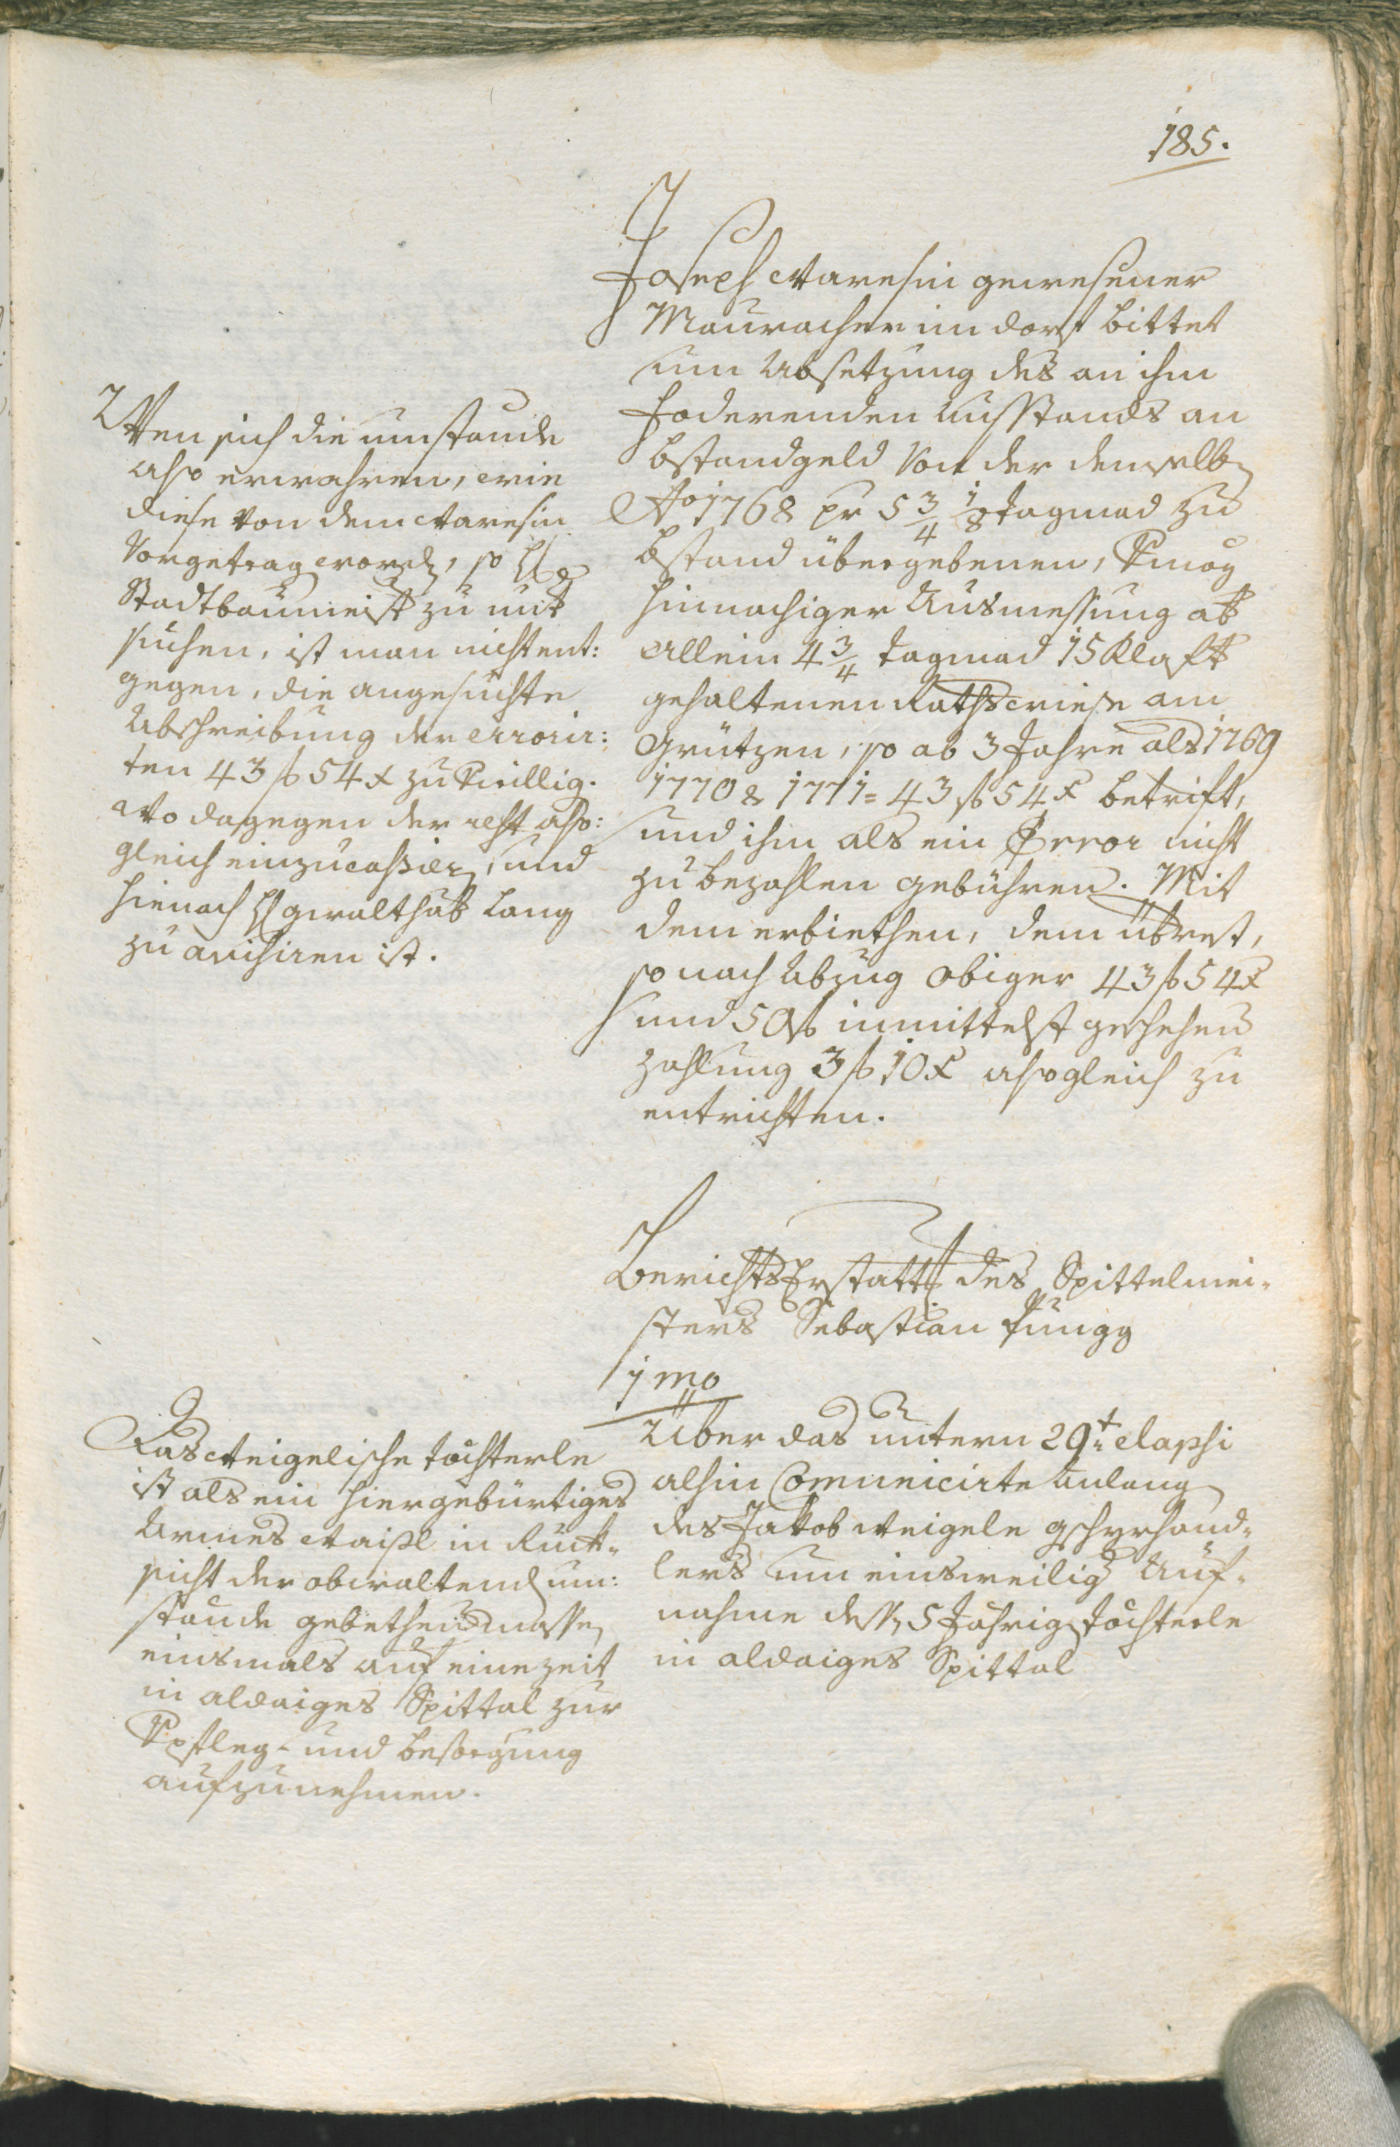 185.
Joseph Waresin gewesener
Mauracher im dorf bittet
um Absetzung des an ihm
foderenden Ausstands an
bstandgeld von der demselb
Ao 1768 pr 5 3/4 1/8 tagmad zu
bstand übergebenen,
hinnachiger Ausmessung ab
allein 4 3/4 tagmad 15 Klaft
gehaltenen Rathswiese am
Grützen, so ab 3 Jahre als 1769
1770 & 1771 = 43 f 54 x betrift,
und ihm als ein Error nicht
zu bezahlen gebühren. Mit
dem erbiethen, dem übrest,
so nach Abzug obiger 43 f 54 x
und 50 f inmittelst geschehens
zahlung 3 f 10 x alsogleich zu
entrichten.
Wen sich die umstände
also erwahren, wie
diese von dem Waresin
vorgetrag word, so H
Stadtbaumeist zu unt
suchen, ist man nicht ent:
gegen, die angesuchte
Abschreibung der errorir:
ten 43 f 54 x zu willig.
Wo dagegen der rest also:
gleich einzucassier, und
hienach H gwalthab Lang
zu avisiren ist.
Berichts Erstatt des Spittelmei-
sters Sebastian Jungg
1mo
Über das untern 29t elapsi
alhin Comunicirte Anlang
des Jakob Weigele gschyrhand-
lers um einsweilig Auf-
nahme dess 5 Jährig töchterle
in aldaiges Spittal
Das Weigelische töchterle
ist als ein hiergebürtiges
Armes Waisl in Ruck-
sicht der obwaltend um:
stände gebethnermasse
einsmals auf eine zeit
in aldaiges Spittal zur
Vpfleg- und besorgung
aufzunehmen.